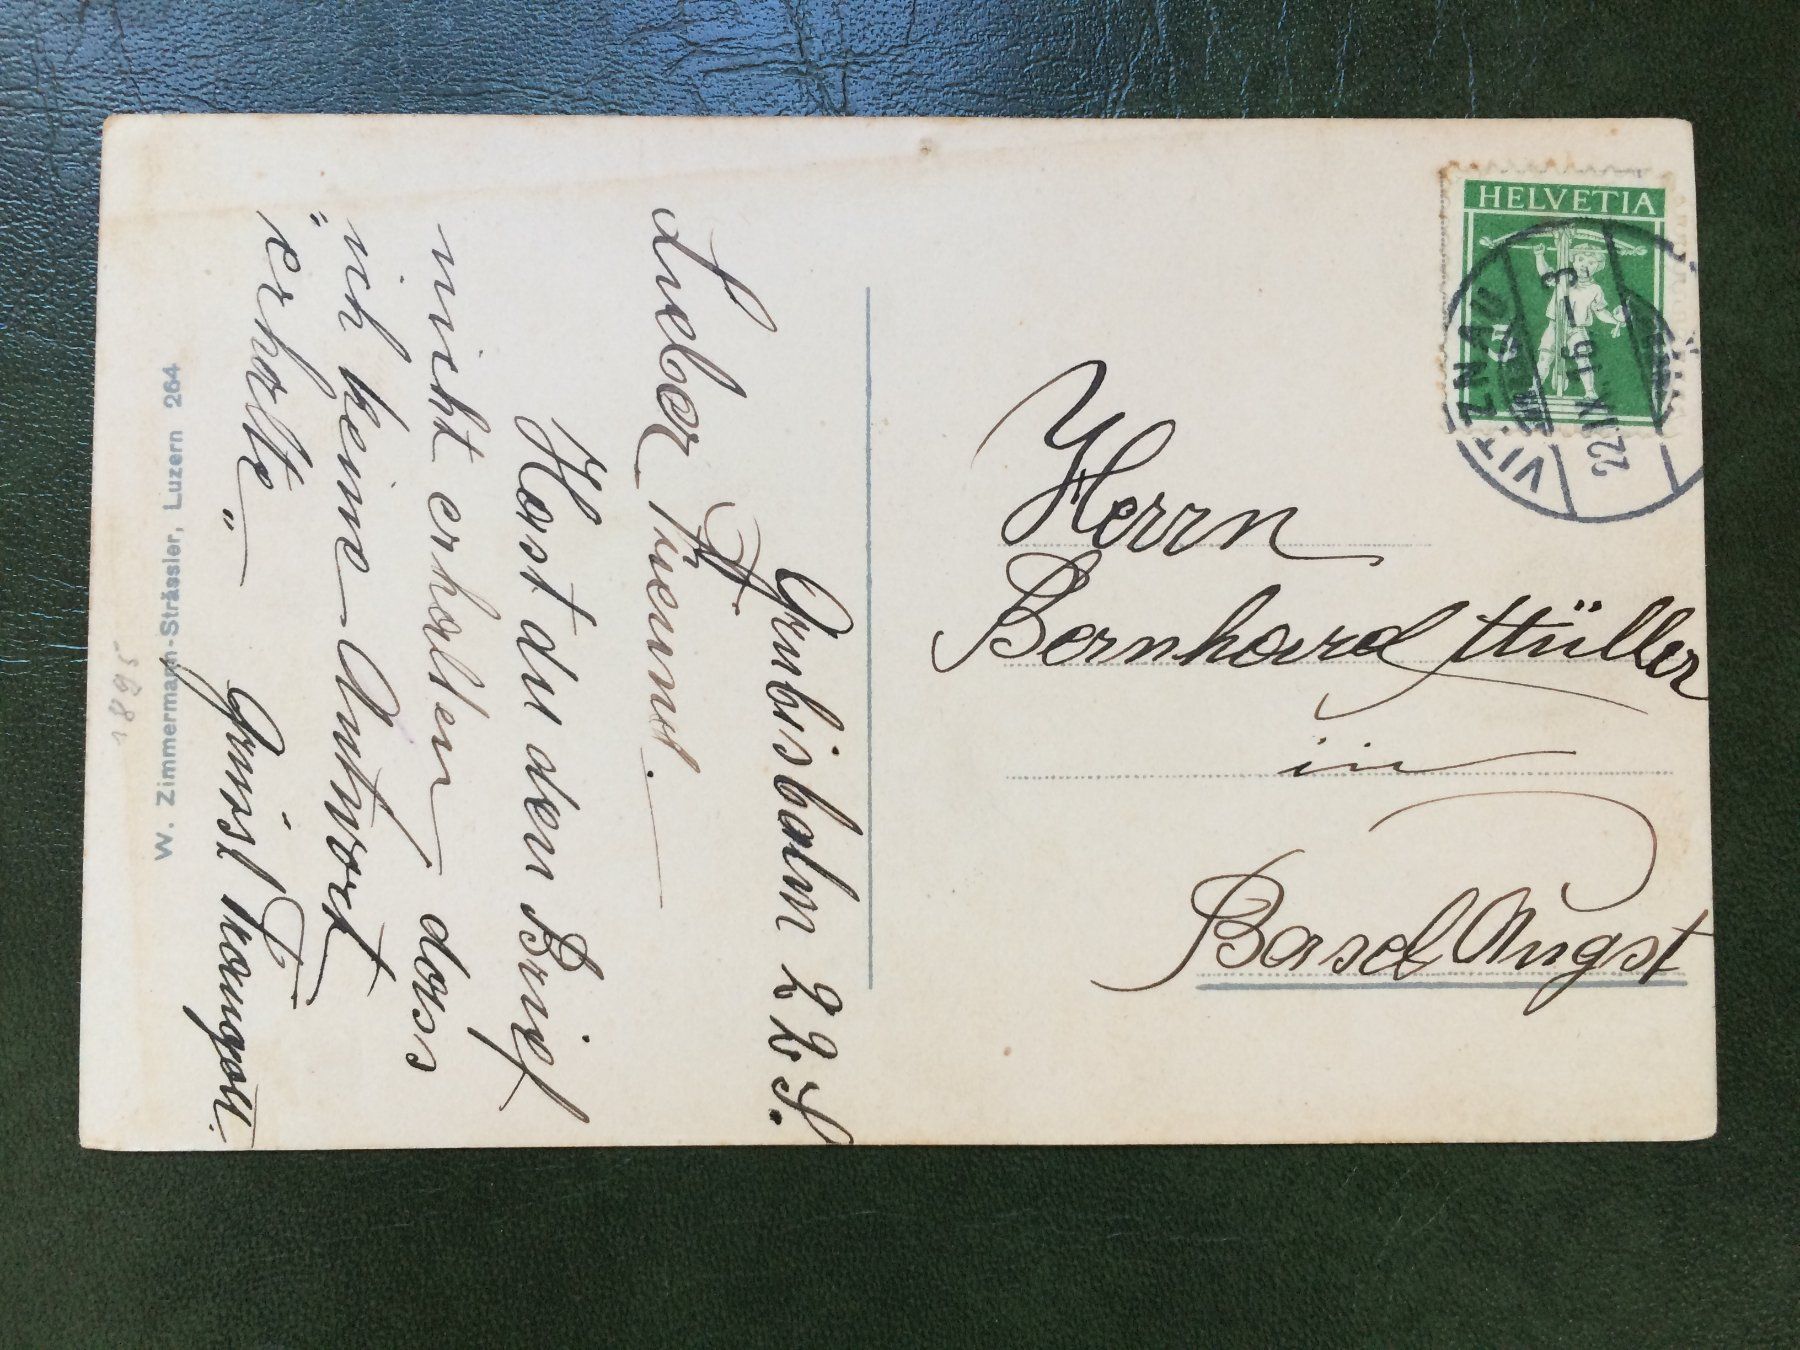 HELVETIA
VITZNAU
22.IX.16 – 3
Grubisbalm 22 S.
Lieber Freund.
Hast du den Brief
nicht erhalten dass
ich keine Antwort
"erhalte"
Grüsst
Herrn
Bernhard Müller
in
Basel Augst
W. Zimmermann-Strässler, Luzern 264
1895